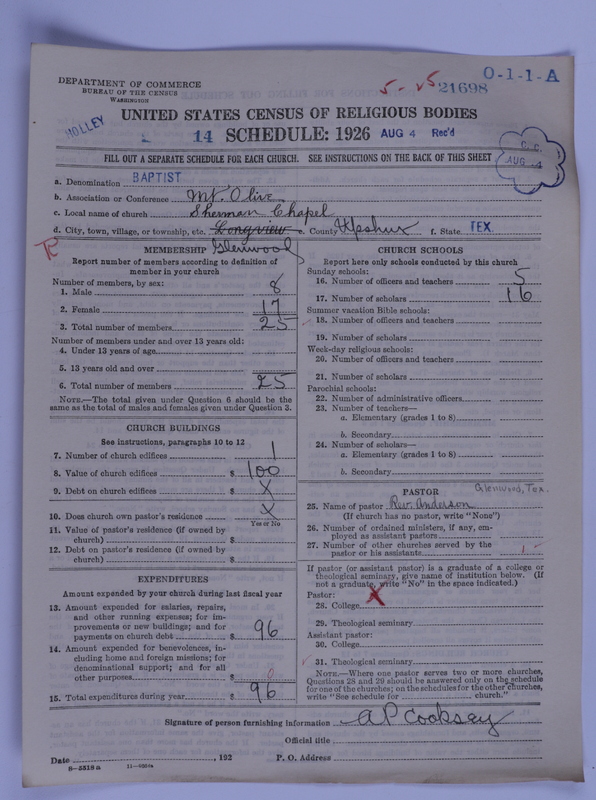 O-1-1-A
5-25
21698
DEPARTMENT OF COMMERCE
BUREAU OF THE CENSUS
WASHINGTON
UNITED STATES CENSUS OF RELIGIOUS BODIES
HOLLEY
14 SCHEDULE: 1926 AUG 4 Rec'd
C. C.
AUG 4
FILL OUT A SEPARATE SCHEDULE FOR EACH CHURCH. SEE INSTRUCTIONS ON THE BACK OF THIS SHEET
a. Denomination BAPTIST
b. Association or Conference Mt. Olive
c. Local name of church Sherman Chapel
d. City, town, village, or township, etc. Longview e. County Upshur f. State TEX.
Glenwood
MEMBERSHIP
Report number of members according to definition of
member in your church
Number of members, by sex:
1. Male 8
2. Female 17
3. Total number of members 25
Number of members under and over 13 years old:
4. Under 13 years of age
5. 13 years old and over
6. Total number of members 25
NOTE.—The total given under Question 6 should be the
same as the total of males and females given under Question 3.
CHURCH BUILDINGS
See instructions, paragraphs 10 to 12
7. Number of church edifices 1
8. Value of church edifices $ 100
9. Debt on church edifices $ X
10. Does church own pastor's residence X
Yes or No
11. Value of pastor's residence (if owned by
church) $
12. Debt on pastor's residence (if owned by
church) $
EXPENDITURES
Amount expended by your church during last fiscal year
13. Amount expended for salaries, repairs,
and other running expenses; for im-
provements or new buildings; and for
payments on church debt $ 96
14. Amount expended for benevolences, in-
cluding home and foreign missions; for
denominational support; and for all
other purposes $ 0
15. Total expenditures during year $ 96
CHURCH SCHOOLS
Report here only schools conducted by this church
Sunday schools:
16. Number of officers and teachers 5
17. Number of scholars 16
Summer vacation Bible schools:
18. Number of officers and teachers
19. Number of scholars
Week-day religious schools:
20. Number of officers and teachers
21. Number of scholars
Parochial schools:
22. Number of administrative officers
23. Number of teachers—
a. Elementary (grades 1 to 8)
b. Secondary
24. Number of scholars—
a. Elementary (grades 1 to 8)
b. Secondary
PASTOR
Glenwood, Tex.
25. Name of pastor Rev. Anderson
(If church has no pastor, write "None")
26. Number of ordained ministers, if any, em-
ployed as assistant pastors
27. Number of other churches served by the
pastor or his assistants 1
If pastor (or assistant pastor) is a graduate of a college or
theological seminary, give name of institution below. (If
not a graduate, write "No" in the space indicated.)
Pastor: X
28. College
29. Theological seminary
Assistant pastor:
30. College
31. Theological seminary
NOTE.—Where one pastor serves two or more churches,
Questions 28 and 29 should be answered only on the schedule
for one of the churches; on the schedules for the other churches,
write "See schedule for church."
Signature of person furnishing information A P Cooksey
Official title
Date , 192 P. O. Address
8-5518 a